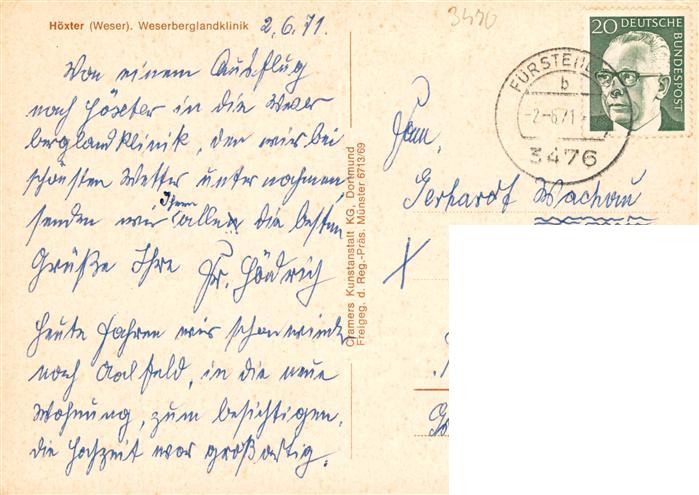 Höxter (Weser). Weserberglandklinik
2.6.71.
Von einem Ausflug
nach Höxter in die Weser
berglandklinik, den wir bei
schönsten Wetter unternahmen
senden wir Ihnen allen die besten
Grüße Ihre Fr. Hödrich
Heute fahren wir schon wieder
nach Aalfeld, in die neue
Wohnung, zum besichtigen,
die Hochzeit war großartig.
Cramers Kunstanstalt KG, Dortmund
Freigeg. d. Reg.-Präs. Münster 6713/69
3476
20 DEUTSCHE BUNDESPOST
FÜRSTENBERG
b
-2.-6.71
3476
Fam.
Gerhardt Wachau